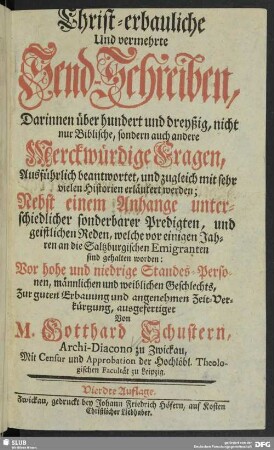 Christ-erbauliche
Und vermehrte
Send-Schreiben,
Darinnen über hundert und dreyßig, nicht
nur Biblische, sondern auch andere
Merckwürdige Fragen,
Ausführlich beantwortet, und zugleich mit sehr
vielen Historien erläutert werden;
Nebst einem Anhange unter-
schiedlicher sonderbarer Predigten, und
geistlichen Reden, welche vor einigen Jah-
ren an die Saltzburgischen Emigranten
sind gehalten worden:
Vor hohe und niedrige Standes-Perso-
nen, männlichen und weiblichen Geschlechts,
Zur guten Erbauung und angenehmen Zeit-Ver-
kürtzung, ausgefertiget
Von
M. Gotthard Schustern,
Archi-Diacono zu Zwickau,
Mit Censur und Approbation der Hochlöbl. Theolo-
gischen Facultät zu Leipzig.
Vierdte Auflage.
Zwickau, gedruckt bey Johann Friedrich Höfern, auf Kosten
Christlicher Liebhaber.
SLUB
DFG